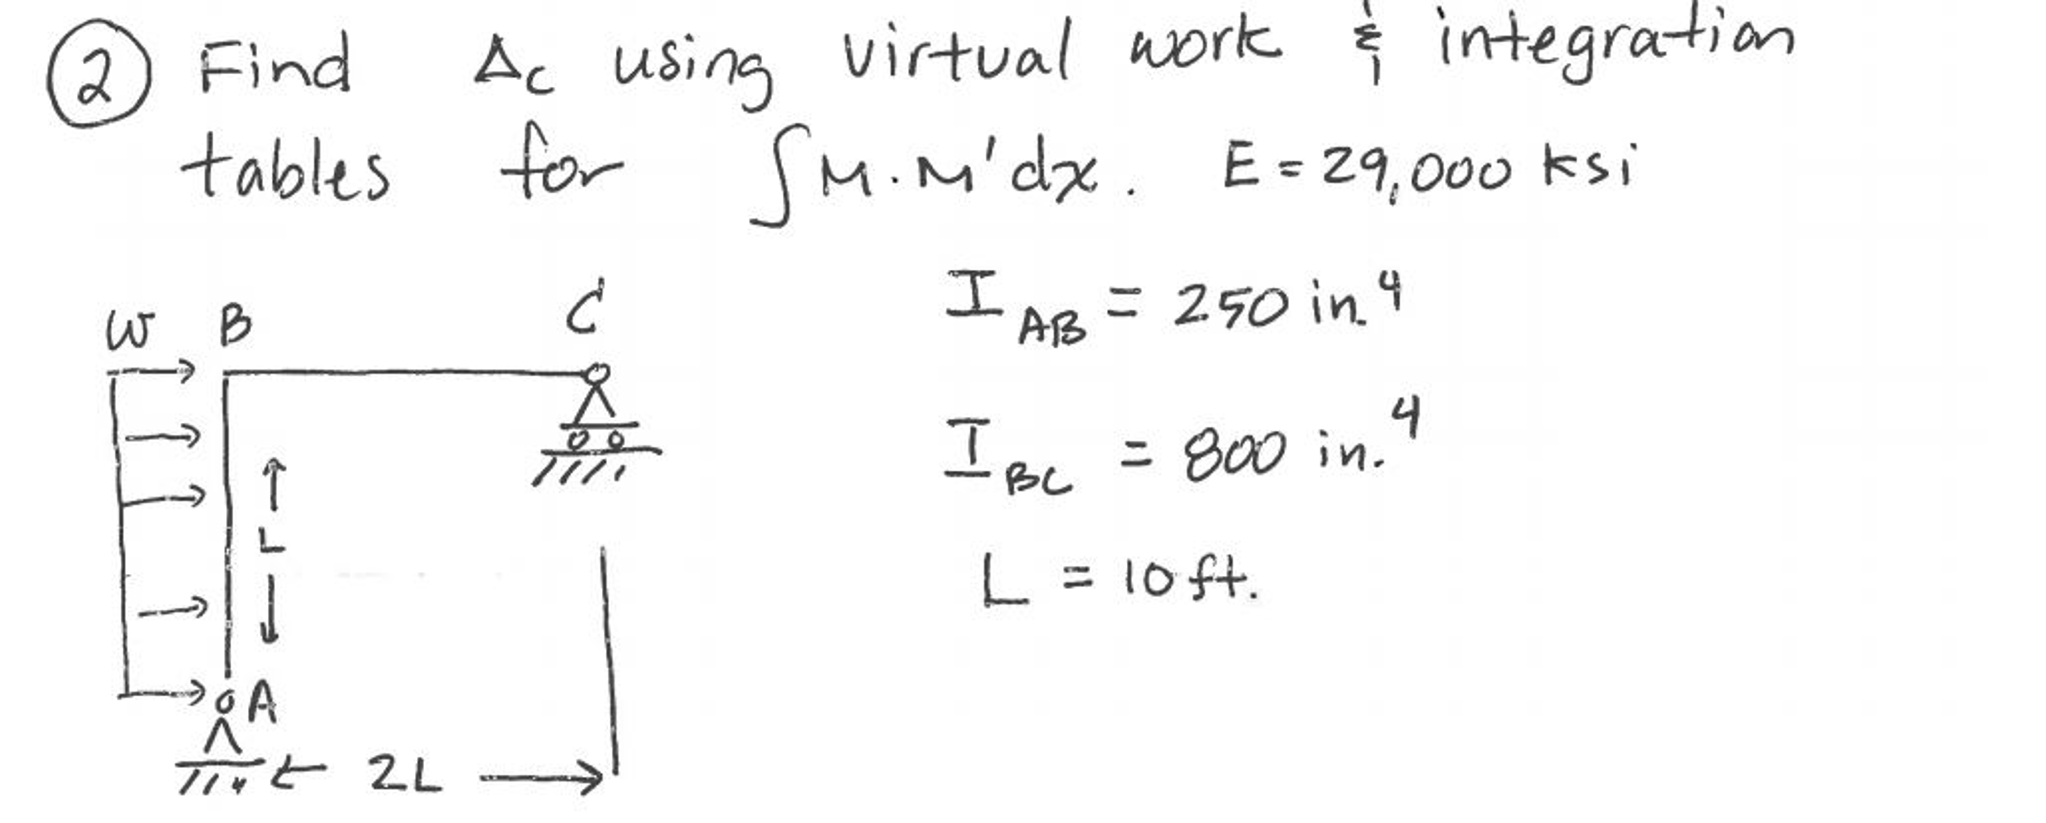 ② Find Δc using virtual work & integration
tables for ∫M·M'dx. E = 29,000 ksi
I_AB = 250 in.⁴
W B C
I_BC = 800 in.⁴
L
L = 10 ft.
A
2L